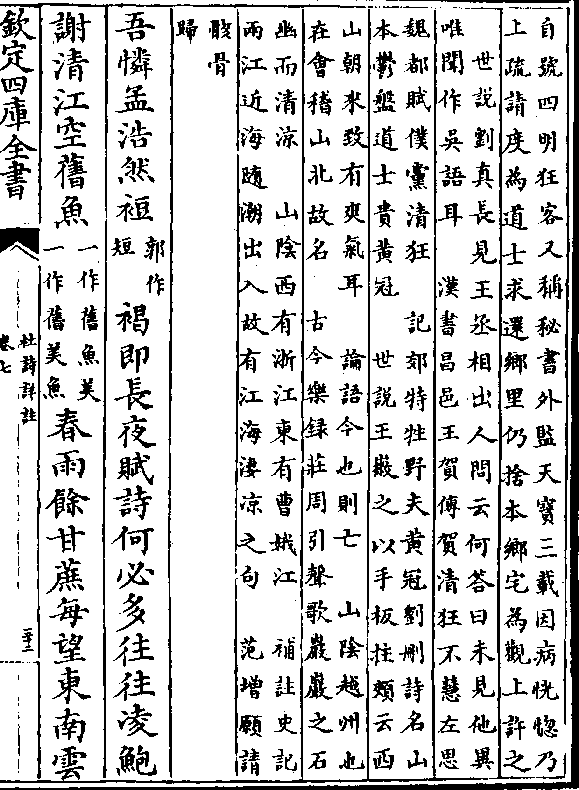 自號四明狂客又稱秘書外監天寳三載因病恍惚乃
上疏請度為道士求還鄉里仍捨本鄉宅為觀上許之
世説劉真長見王丞相出人問云何答曰未見他異
唯聞作吳語耳　漢書昌邑王賀傳賀清狂不慧左思
魏都賦僕黨清狂　記郊特牲野夫黄冠劉刪詩名山
本鬱盤道士貴黄冠　世説王徽之以手板拄頰云西
山朝來致有爽氣耳　論語今也則亡　山陰越州也
在會稽山北故名　古今樂録莊周引聲歌巖巖之石
幽而清涼　山陰西有浙江東有曹娥江　補註史記
兩江近海隨潮出入故有江海凄凉之句　范增願請
骸骨
歸
吾憐孟浩然裋
郭作
短
褐即長夜賦詩何必多往往凌鮑
謝清江空舊魚
一作舊魚美
一作舊美魚
春雨餘甘蔗每望東南雲
欽定四庫全書
杜詩詳註
卷七
三十二